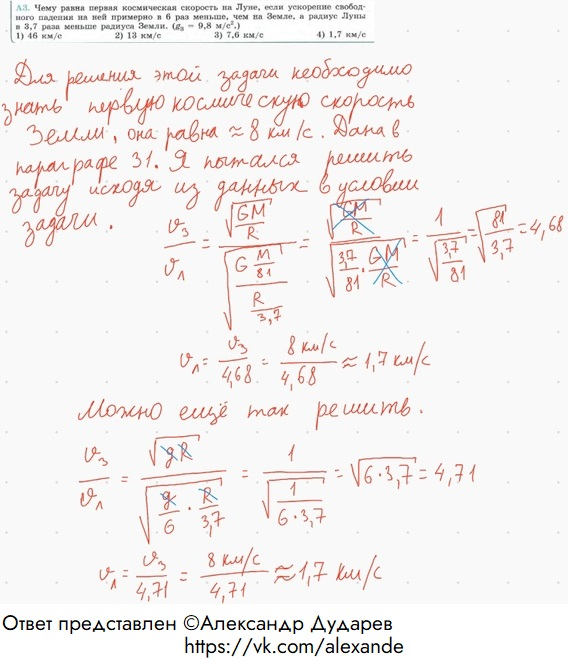 А3. Чему равна первая космическая скорость на Луне, если ускорение свобод-
ного падения на ней примерно в 6 раз меньше, чем на Земле, а радиус Луны
в 3,7 раза меньше радиуса Земли. (gз = 9,8 м/с².)
1) 46 км/с 2) 13 км/с 3) 7,6 км/с 4) 1,7 км/с
Для решения этой задачи необходимо
знать первую космическую скорость
Земли, она равна ≈ 8 км/с. Дана в
параграфе 31. Я пытался решить
задачу исходя из данных в условии
задачи.
υз/υл = √(GM/R) / √(G (M/81) / (R/3,7)) = √(GM/R) / √(3,7/81 · GM/R) = 1/√(3,7/81) = √(81/3,7) = 4,68
υл = υз/4,68 = 8 км/с / 4,68 ≈ 1,7 км/с
Можно ещё так решить.
υз/υл = √(gR) / √(g/6 · R/3,7) = 1/√(1/(6·3,7)) = √(6·3,7) = 4,71
υл = υз/4,71 = 8 км/с / 4,71 ≈ 1,7 км/с
Ответ представлен ©Александр Дударев
https://vk.com/alexande